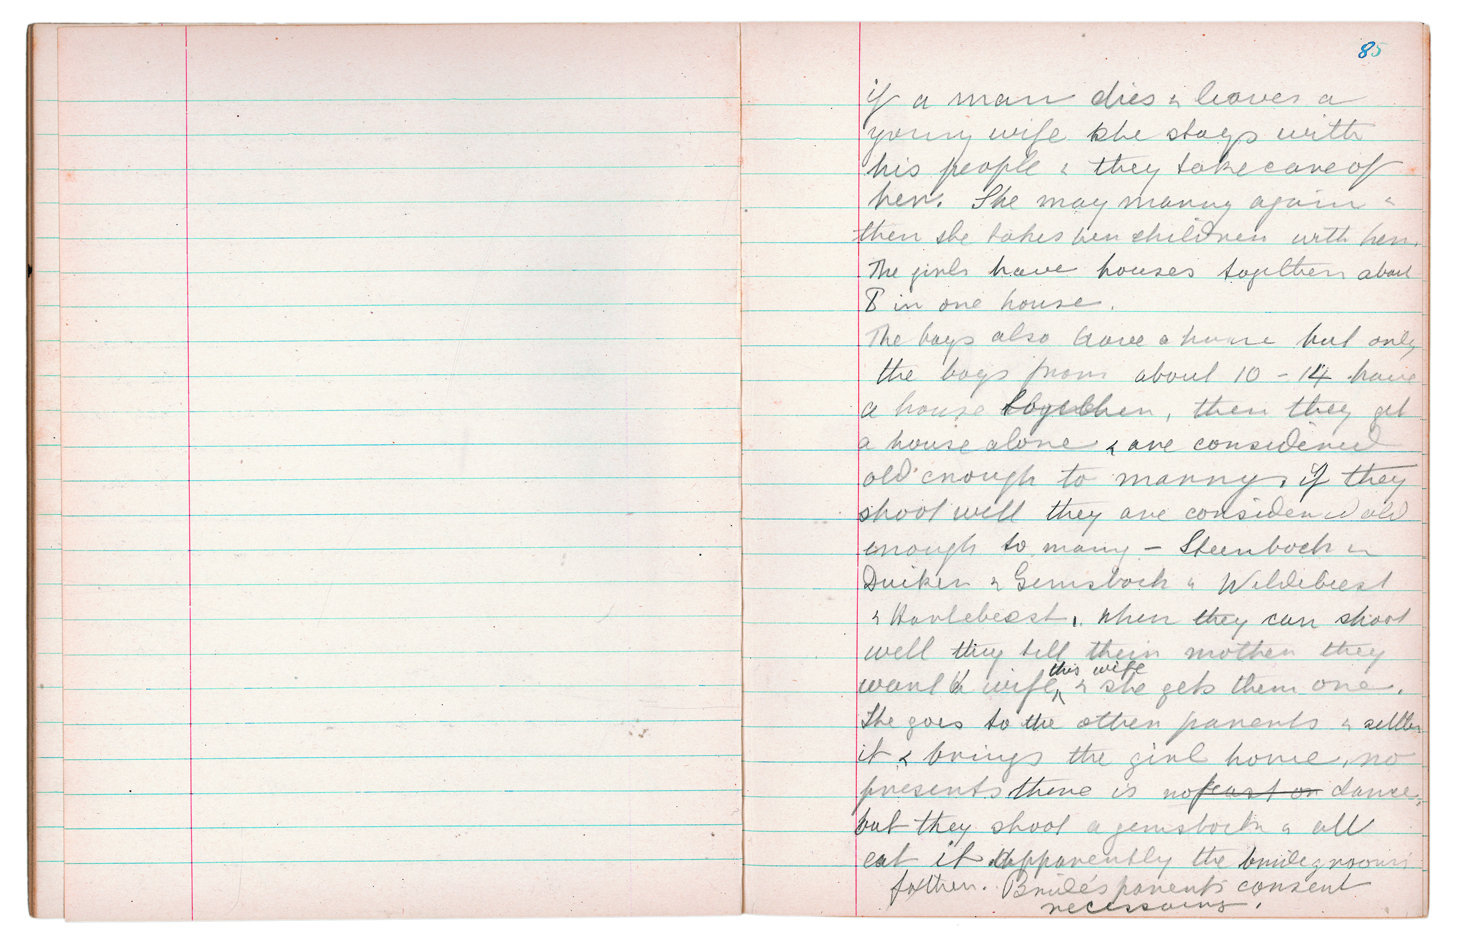 85
if a man dies & leaves a
young wife she stays with
his people & they take care of
her. She may marry again &
then she takes her children with her.
The girls have houses together about
8 in one house.
The boys also have a house but only
the boys from about 10 - 14 have
a house together, then they get
a house alone & are considered
old enough to marry, if they
shoot well they are considered old
enough to marry - Steenbock &
Duiker & Gemsbock & Wildebeest
& Hartebeest, when they can shoot
well they tell their mother they
want a wife & she gets them one.
this wife
She goes to the other parents & settles
it & brings the girl home, no
presents there is no feast or dance,
but they shoot a gemsbock & all
eat it apparently the bridegrooms
father. Bride's parents consent
necessary.